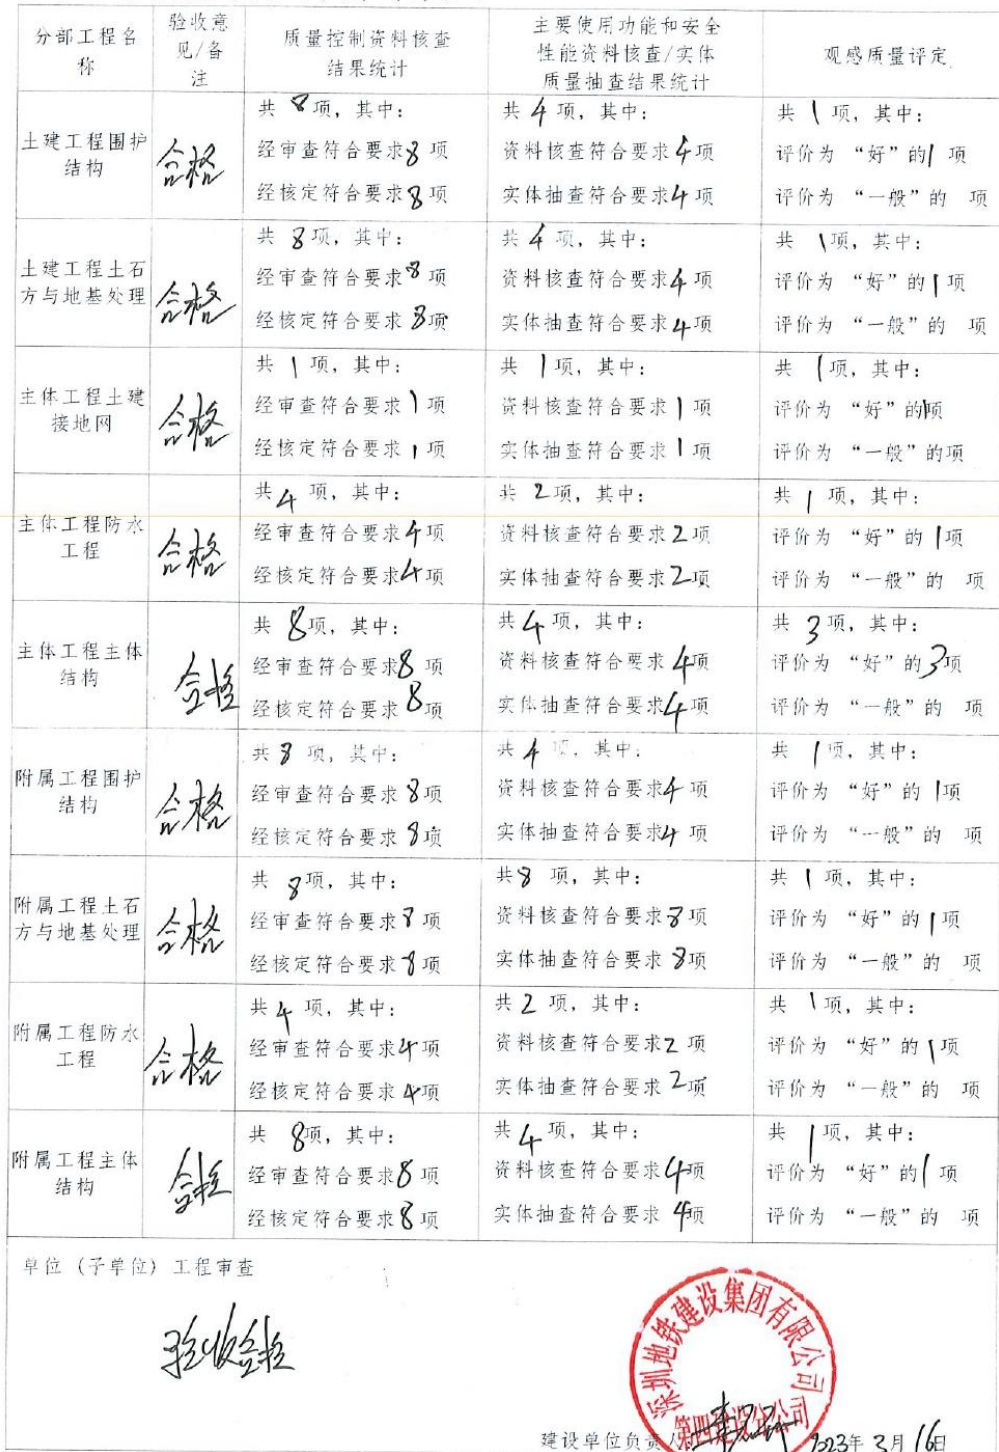 分部工程名
称
验收意
见/备
注
质量控制资料核查
结果统计
主要使用功能和安全
性能资料核查/实体
质量抽查结果统计
观感质量评定
土建工程围护
结构
合格
共 8 项，其中：
经审查符合要求 8 项
经核定符合要求 8 项
共 4 项，其中：
资料核查符合要求 4 项
实体抽查符合要求 4 项
共 1 项，其中：
评价为 “好” 的 1 项
评价为 “一般” 的 项
土建工程土石
方与地基处理
合格
共 8 项，其中：
经审查符合要求 8 项
经核定符合要求 8 项
共 4 项，其中：
资料核查符合要求 4 项
实体抽查符合要求 4 项
共 1 项，其中：
评价为 “好” 的 1 项
评价为 “一般” 的 项
主体工程土建
接地网
合格
共 1 项，其中：
经审查符合要求 1 项
经核定符合要求 1 项
共 1 项，其中：
资料核查符合要求 1 项
实体抽查符合要求 1 项
共 1 项，其中：
评价为 “好” 的 1 项
评价为 “一般” 的项
主体工程防水
工程
合格
共 4 项，其中：
经审查符合要求 4 项
经核定符合要求 4 项
共 2 项，其中：
资料核查符合要求 2 项
实体抽查符合要求 2 项
共 1 项，其中：
评价为 “好” 的 1 项
评价为 “一般” 的 项
主体工程主体
结构
合格
共 8 项，其中：
经审查符合要求 8 项
经核定符合要求 8 项
共 4 项，其中：
资料核查符合要求 4 项
实体抽查符合要求 4 项
共 3 项，其中：
评价为 “好” 的 3 项
评价为 “一般” 的 项
附属工程围护
结构
合格
共 8 项，其中：
经审查符合要求 8 项
经核定符合要求 8 项
共 4 项，其中：
资料核查符合要求 4 项
实体抽查符合要求 4 项
共 1 项，其中：
评价为 “好” 的 1 项
评价为 “一般” 的 项
附属工程土石
方与地基处理
合格
共 8 项，其中：
经审查符合要求 8 项
经核定符合要求 8 项
共 8 项，其中：
资料核查符合要求 8 项
实体抽查符合要求 8 项
共 1 项，其中：
评价为 “好” 的 1 项
评价为 “一般” 的 项
附属工程防水
工程
合格
共 4 项，其中：
经审查符合要求 4 项
经核定符合要求 4 项
共 2 项，其中：
资料核查符合要求 2 项
实体抽查符合要求 2 项
共 1 项，其中：
评价为 “好” 的 1 项
评价为 “一般” 的 项
附属工程主体
结构
合格
共 8 项，其中：
经审查符合要求 8 项
经核定符合要求 8 项
共 4 项，其中：
资料核查符合要求 4 项
实体抽查符合要求 4 项
共 1 项，其中：
评价为 “好” 的 1 项
评价为 “一般” 的 项
单位（子单位）工程审查
验收合格
深圳地铁建设集团有限公司
第四建设分公司
建设单位负责人
2023年 3月 16日